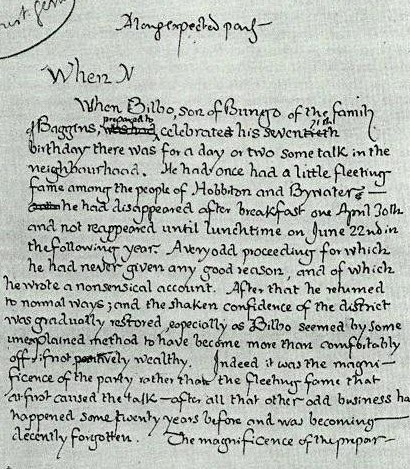 A long expected party
When
When Bilbo, son of Bungo of the family
of Baggins, prepared to celebrate his seventieth
birthday there was for a day or two some talk in the
neighbourhood. He had once had a little fleeting
fame among the people of Hobbiton and Bywater –
he had disappeared after breakfast one April 30th
and not reappeared until lunchtime on June 22nd in
the following year. A very odd proceeding for which
he had never given any good reason, and of which
he wrote a nonsensical account. After that he returned
to normal ways; and the shaken confidence of the district
was gradually restored, especially as Bilbo seemed by some
unexplained method to have become more than comfortably
off, if not positively wealthy. Indeed it was the magni-
ficence of the party rather than the fleeting fame that
at first caused the talk – after all that other odd business ha
happened some twenty years before and was becoming
decently forgotten. The magnificence of the prepar-